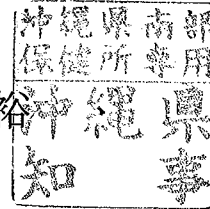 沖縄県南部
保健所専用
沖縄県
知事
裕